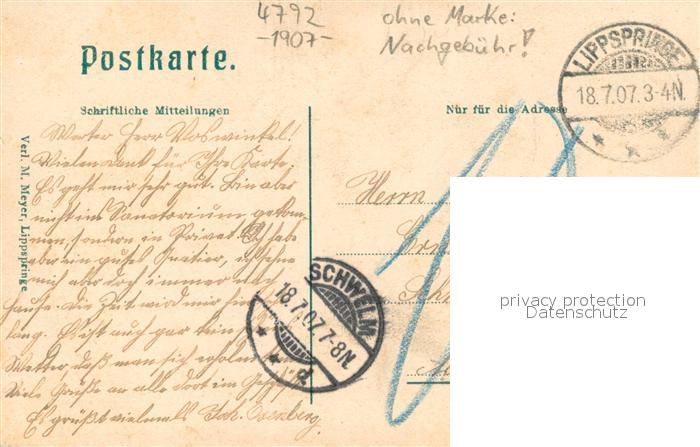 4792
-1907-
ohne Marke:
Nachgebühr!
Postkarte.
LIPPSPRINGE
18.7.07.3-4N.
Schriftliche Mitteilungen
Nur für die Adresse
Verl. M. Meyer, Lippspringe
Werter Herr Voswinkel!
Vielen Dank für Ihre Karte.
Es geht mir sehr gut. Bin aber
nicht ins Sanatorium gekom-
men, sondern in Privat. Ich habe
aber ein gutes Quatier, ich sehne
mich aber doch immer nach
Hause. Die Zeit wird mir hier
lang. Es ist auch gar kein
Wetter, daß man sich erholen
Viele Grüße an alle dort im
Es grüßt vielmals Joh.
Herrn
SCHWELM
18.7.07.7-8N.
privacy protection
Datenschutz